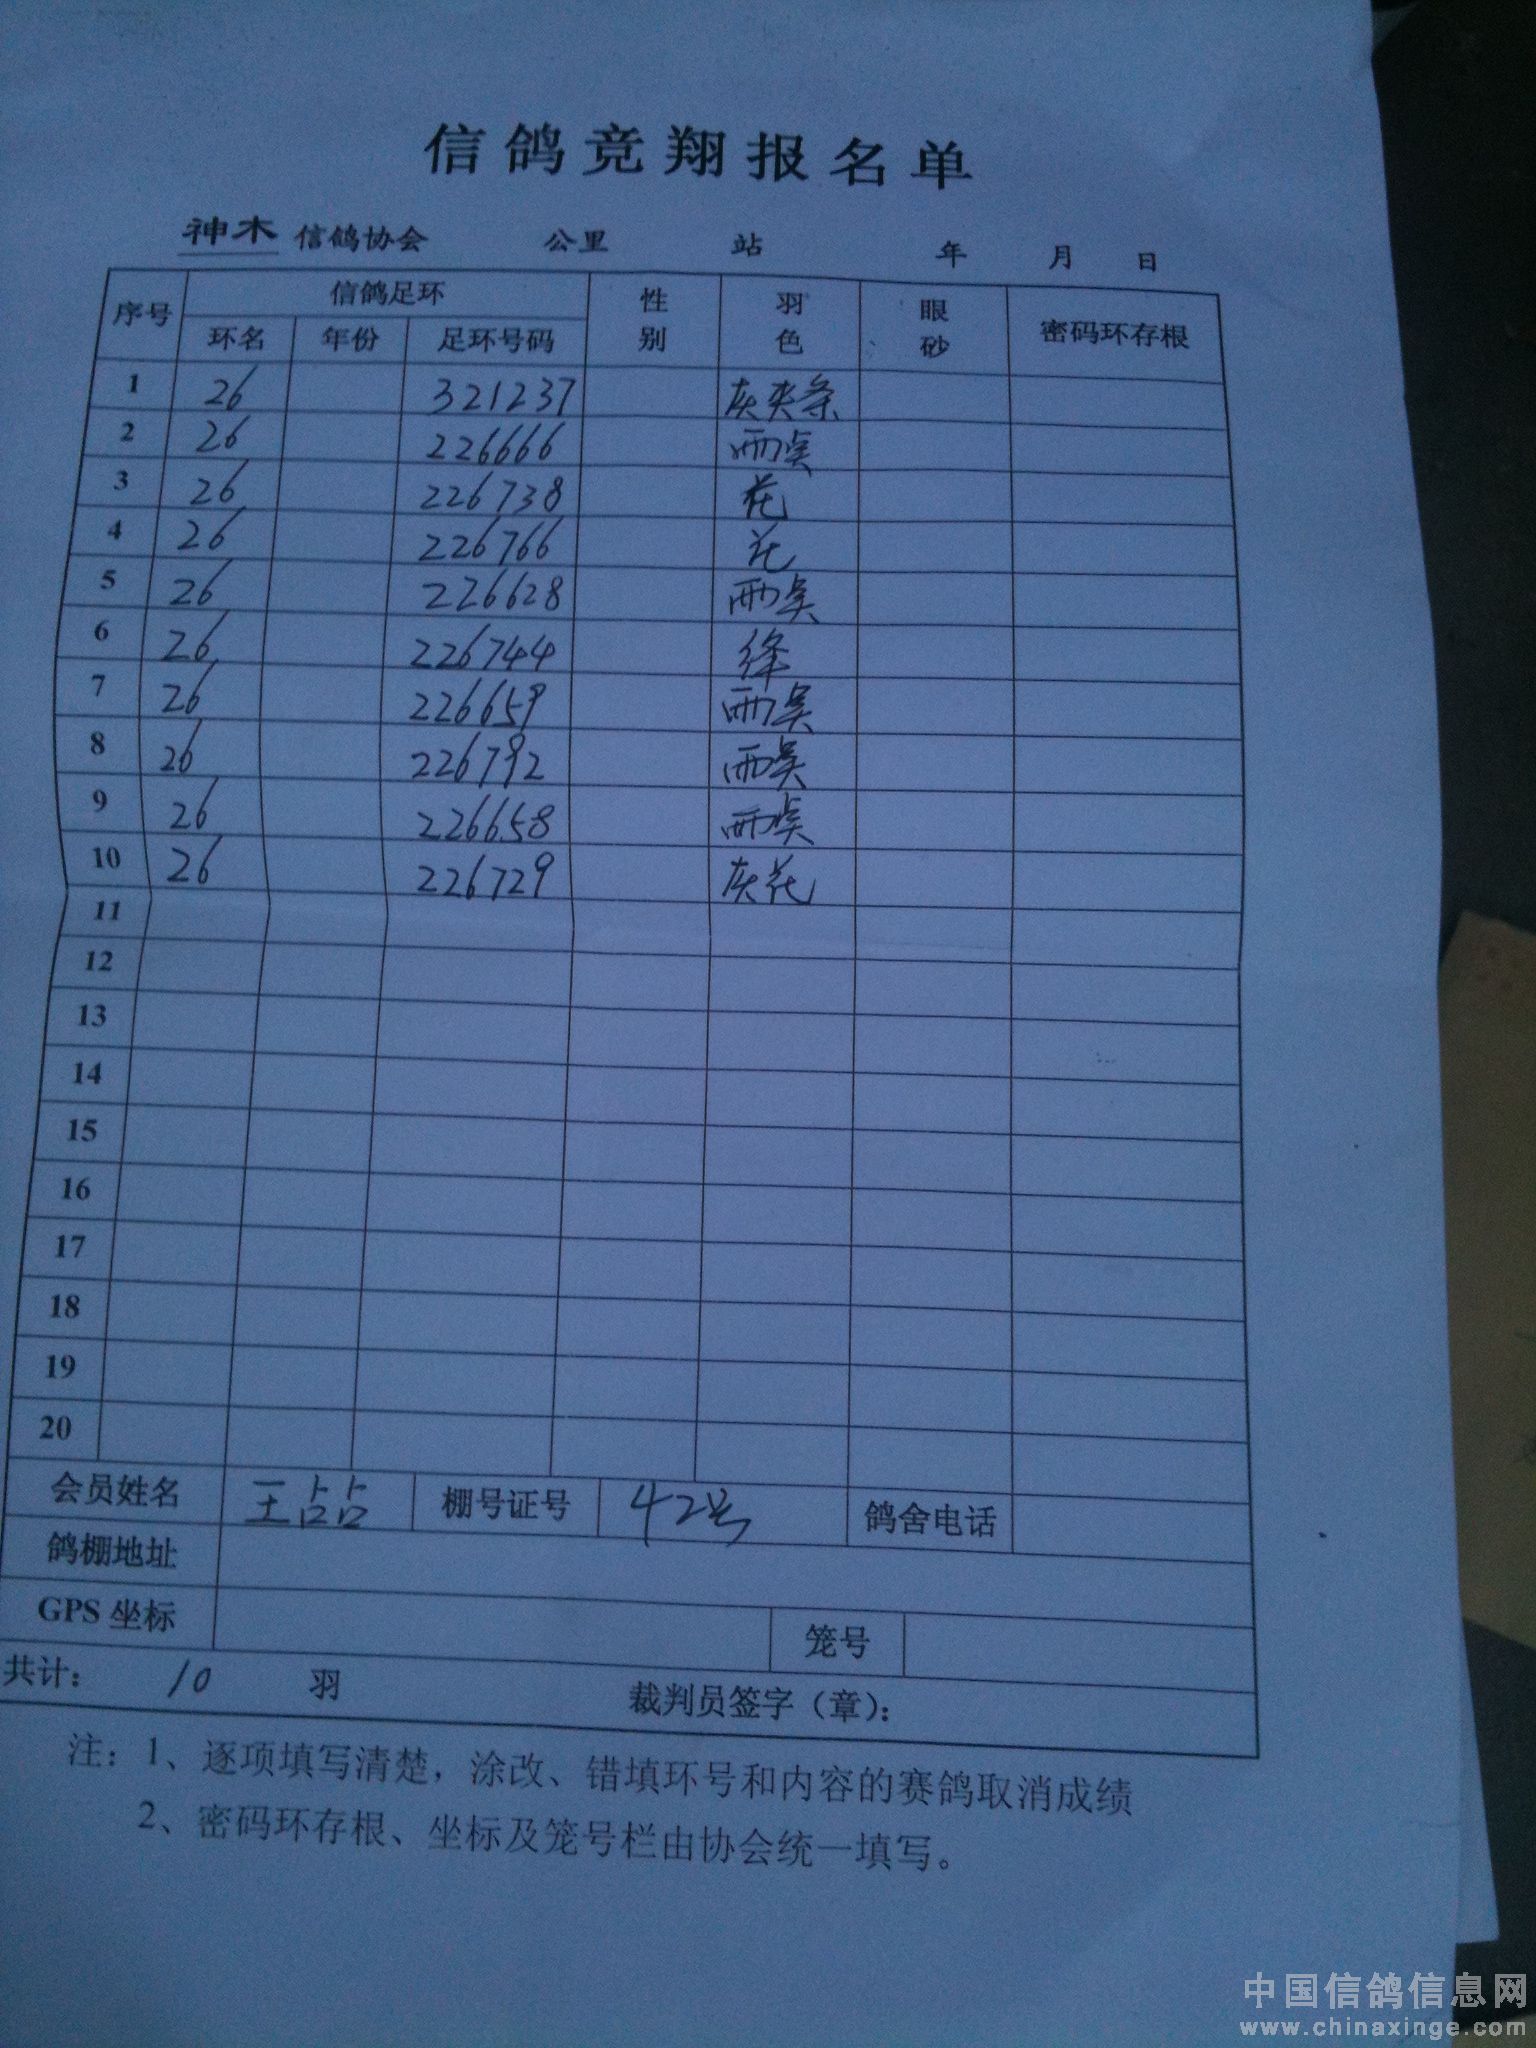 信鸽竞翔报名单
神木 信鸽协会 公里 站 年 月 日
序号 信鸽足环 性别 羽色 眼砂 密码环存根
环名 年份 足环号码
1 26 321237 灰夹条
2 26 226666 雨点
3 26 226738 花
4 26 226766 花
5 26 226628 雨点
6 26 226744 绛
7 26 226659 雨点
8 26 226792 雨点
9 26 226658 雨点
10 26 226729 灰花
11
12
13
14
15
16
17
18
19
20
会员姓名 王 棚号证号 42号 鸽舍电话
鸽棚地址
GPS 坐标 笼号
共计: 10 羽 裁判员签字（章）:
注：1、逐项填写清楚，涂改、错填环号和内容的赛鸽取消成绩
2、密码环存根、坐标及笼号栏由协会统一填写。
中国信鸽信息网
www.chinaxinge.com